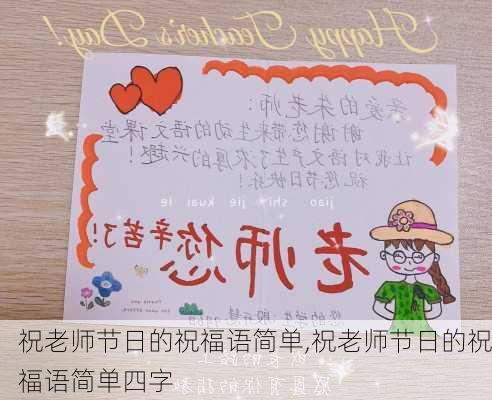 Happy Teacher's Day!
亲爱的朱老师：
谢谢您带来生动的语文课堂
让我对语文产生了浓厚的兴趣！
祝您节日快乐！
jiao shi jie kuai le
老师您辛苦了!
Thank you
for your effort.
您的学生：
祝老师节日的祝福语简单,祝老师节日的祝
福语简单四字